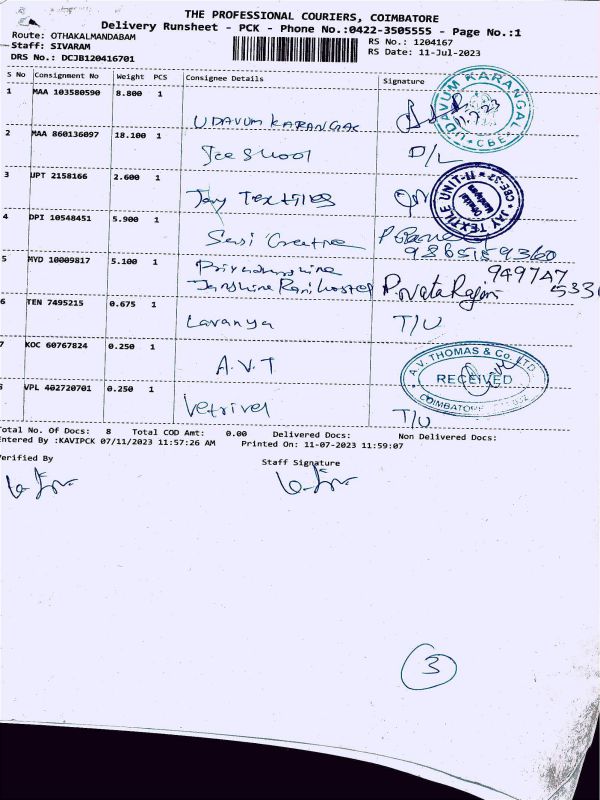 THE PROFESSIONAL COURIERS, COIMBATORE
Delivery Runsheet - PCK - Phone No.:0422-3505555 - Page No.:1
Route: OTHAKALMANDABAM
RS No.: 1204167
Staff: SIVARAM
RS Date: 11-Jul-2023
DRS No.: DCJB120416701
S No Consignment No Weight PCS Consignee Details Signature
1 MAA 103580590 8.800 1
UDAVUM KARANGAL
UDAVUM KARANGAL * CBE *
2 MAA 860136097 18.100 1
D/L
3 UPT 2158166 2.600 1
Jay Textiles
JAY TEXTILE UNIT-II * CBE-32 *
4 DPI 10548451 5.900 1
Sasi Creative
9865159360
5 MVD 10009817 5.100 1
Priyadharshine
949747
6 TEN 7495215 0.675 1
Lavanya T/U
7 KOC 60767824 0.250 1
A.V.T
A.V. THOMAS & Co. LTD
RECEIVED
COIMBATORE
8 VPL 402720701 0.250 1
Vetrivel T/U
Total No. Of Docs: 8 Total COD Amt: 0.00 Delivered Docs: Non Delivered Docs:
Entered By :KAVIPCK 07/11/2023 11:57:26 AM Printed On: 11-07-2023 11:59:07
Verified By Staff Signature
3